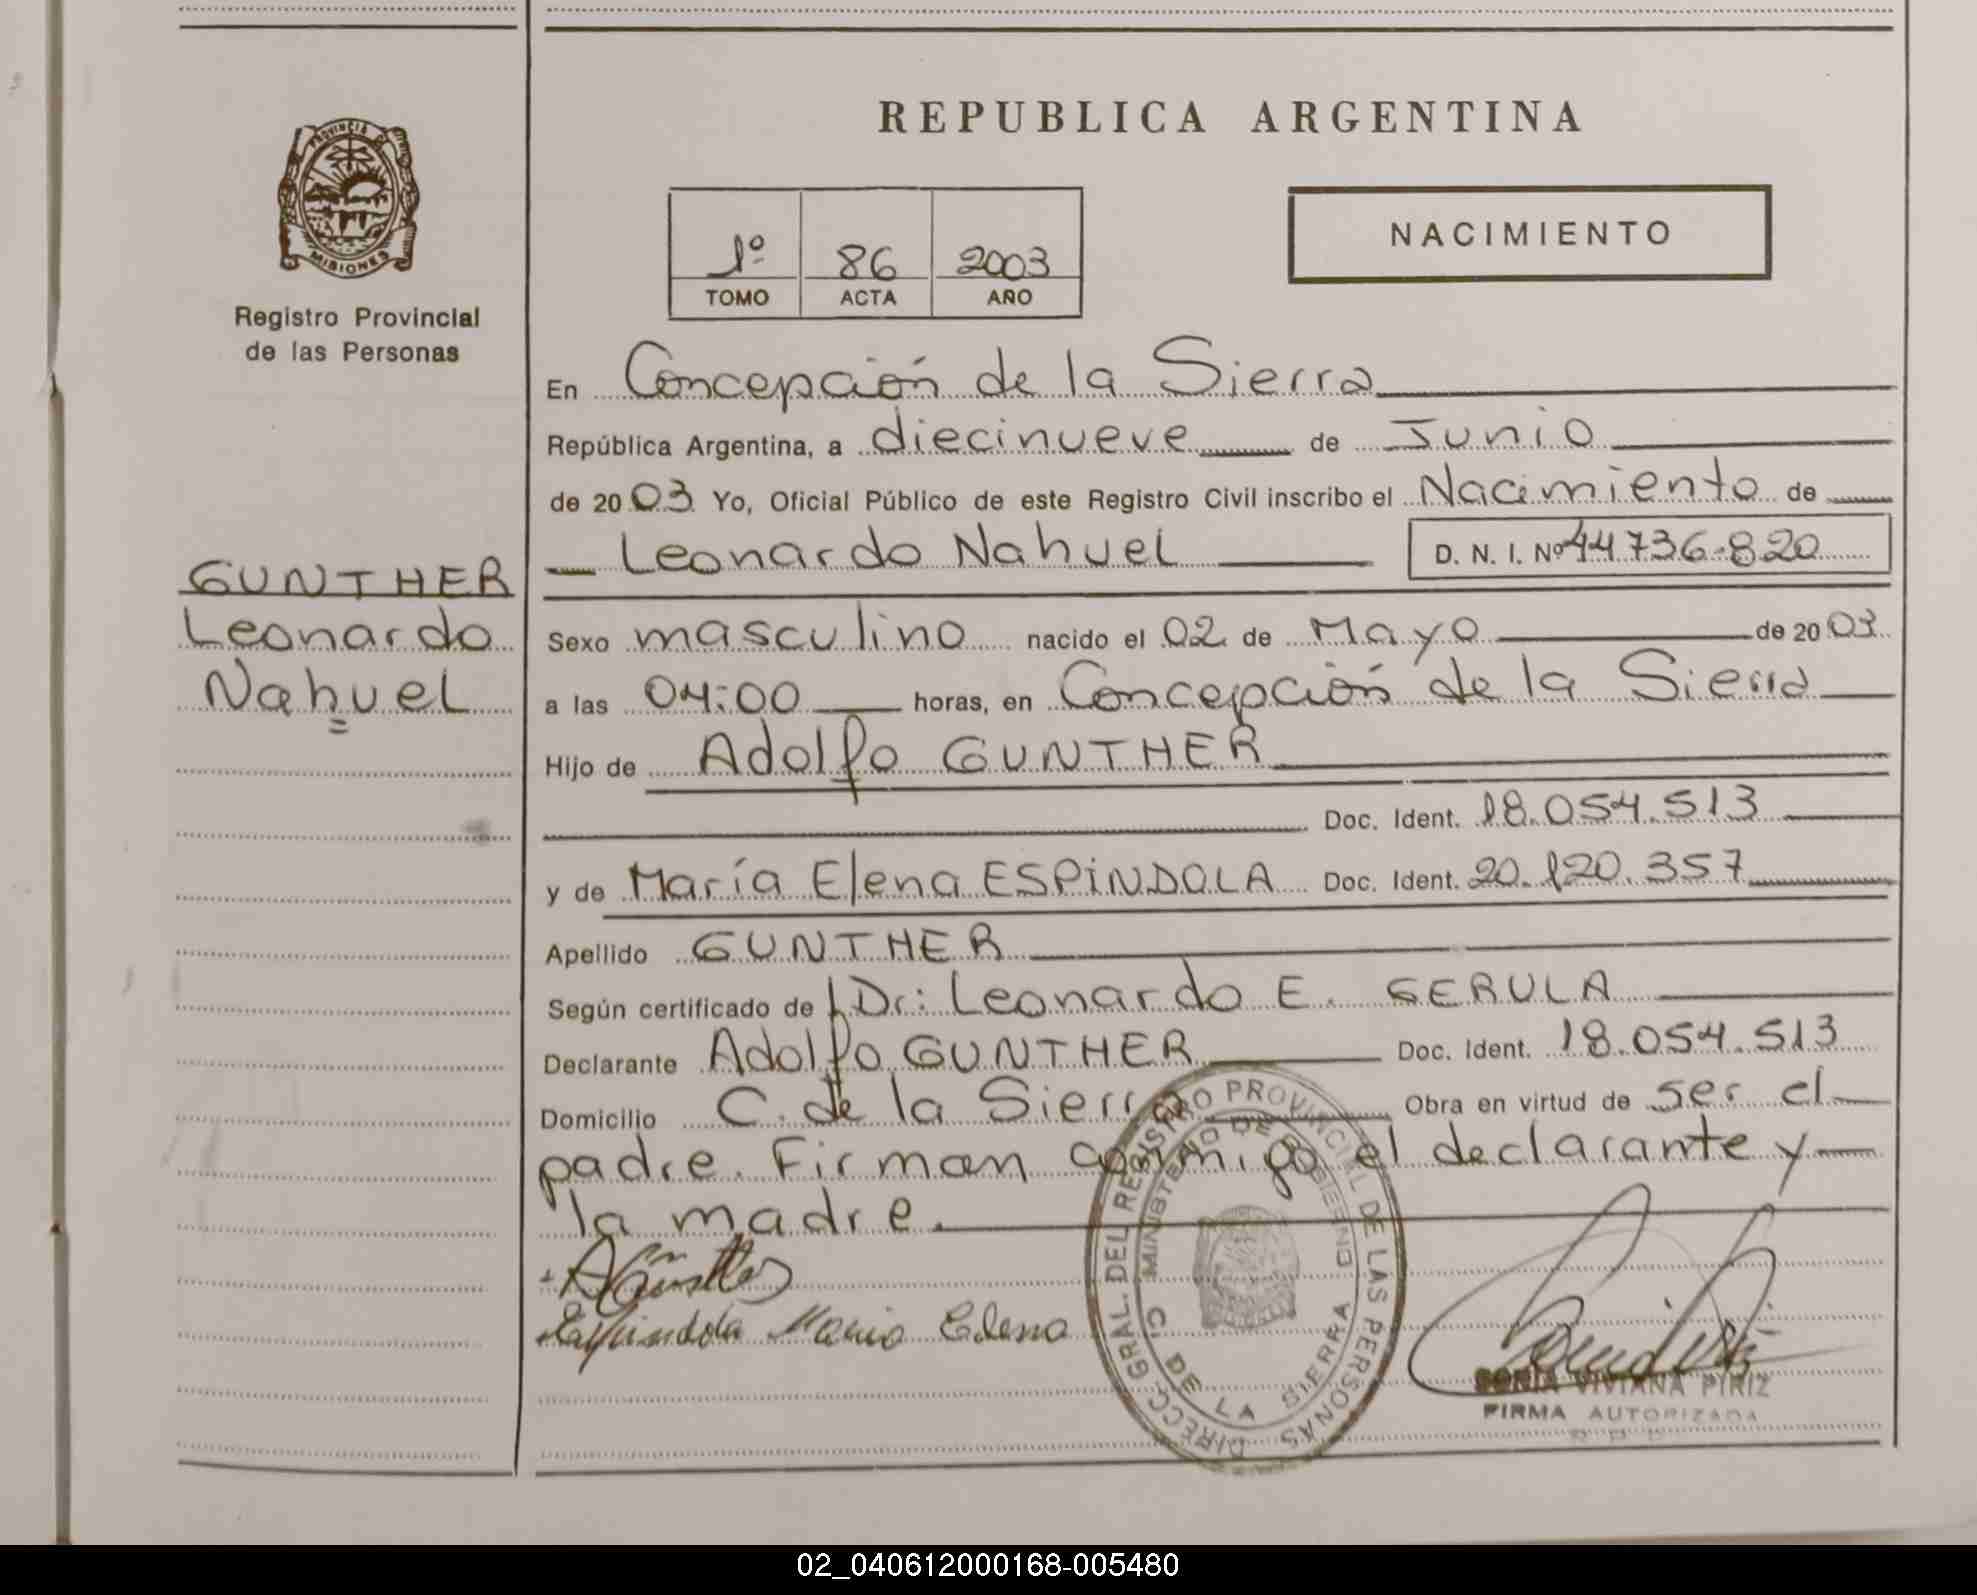 REPUBLICA ARGENTINA
PROVINCIA DE
MISIONES
Registro Provincial
de las Personas
1º 86 2003
TOMO ACTA AÑO
NACIMIENTO
En Concepción de la Sierra
República Argentina, a diecinueve de Junio
de 2003 Yo, Oficial Público de este Registro Civil inscribo el Nacimiento de
Leonardo Nahuel D. N. I. Nº 44736.820
GUNTHER
Leonardo
Nahuel
Sexo masculino nacido el 02 de Mayo de 2003
a las 04:00 horas, en Concepción de la Sierra
Hijo de Adolfo GUNTHER
Doc. Ident. 18.054.513
y de María Elena ESPINDOLA Doc. Ident. 20.120.357
Apellido GUNTHER
Según certificado de Dr: Leonardo E. GERULA
Declarante Adolfo GUNTHER Doc. Ident. 18.054.513
Domicilio C. de la Sierra Obra en virtud de ser el
padre. Firman conmigo el declarante y
la madre.
Espindola Maria Elena
DIRECC. GRAL. DEL REGISTRO PROVINCIAL DE LAS PERSONAS
MINISTERIO DE GOBIERNO
C. DE LA SIERRA
SONIA VIVIANA PIRIZ
FIRMA AUTORIZADA
02_040612000168-005480